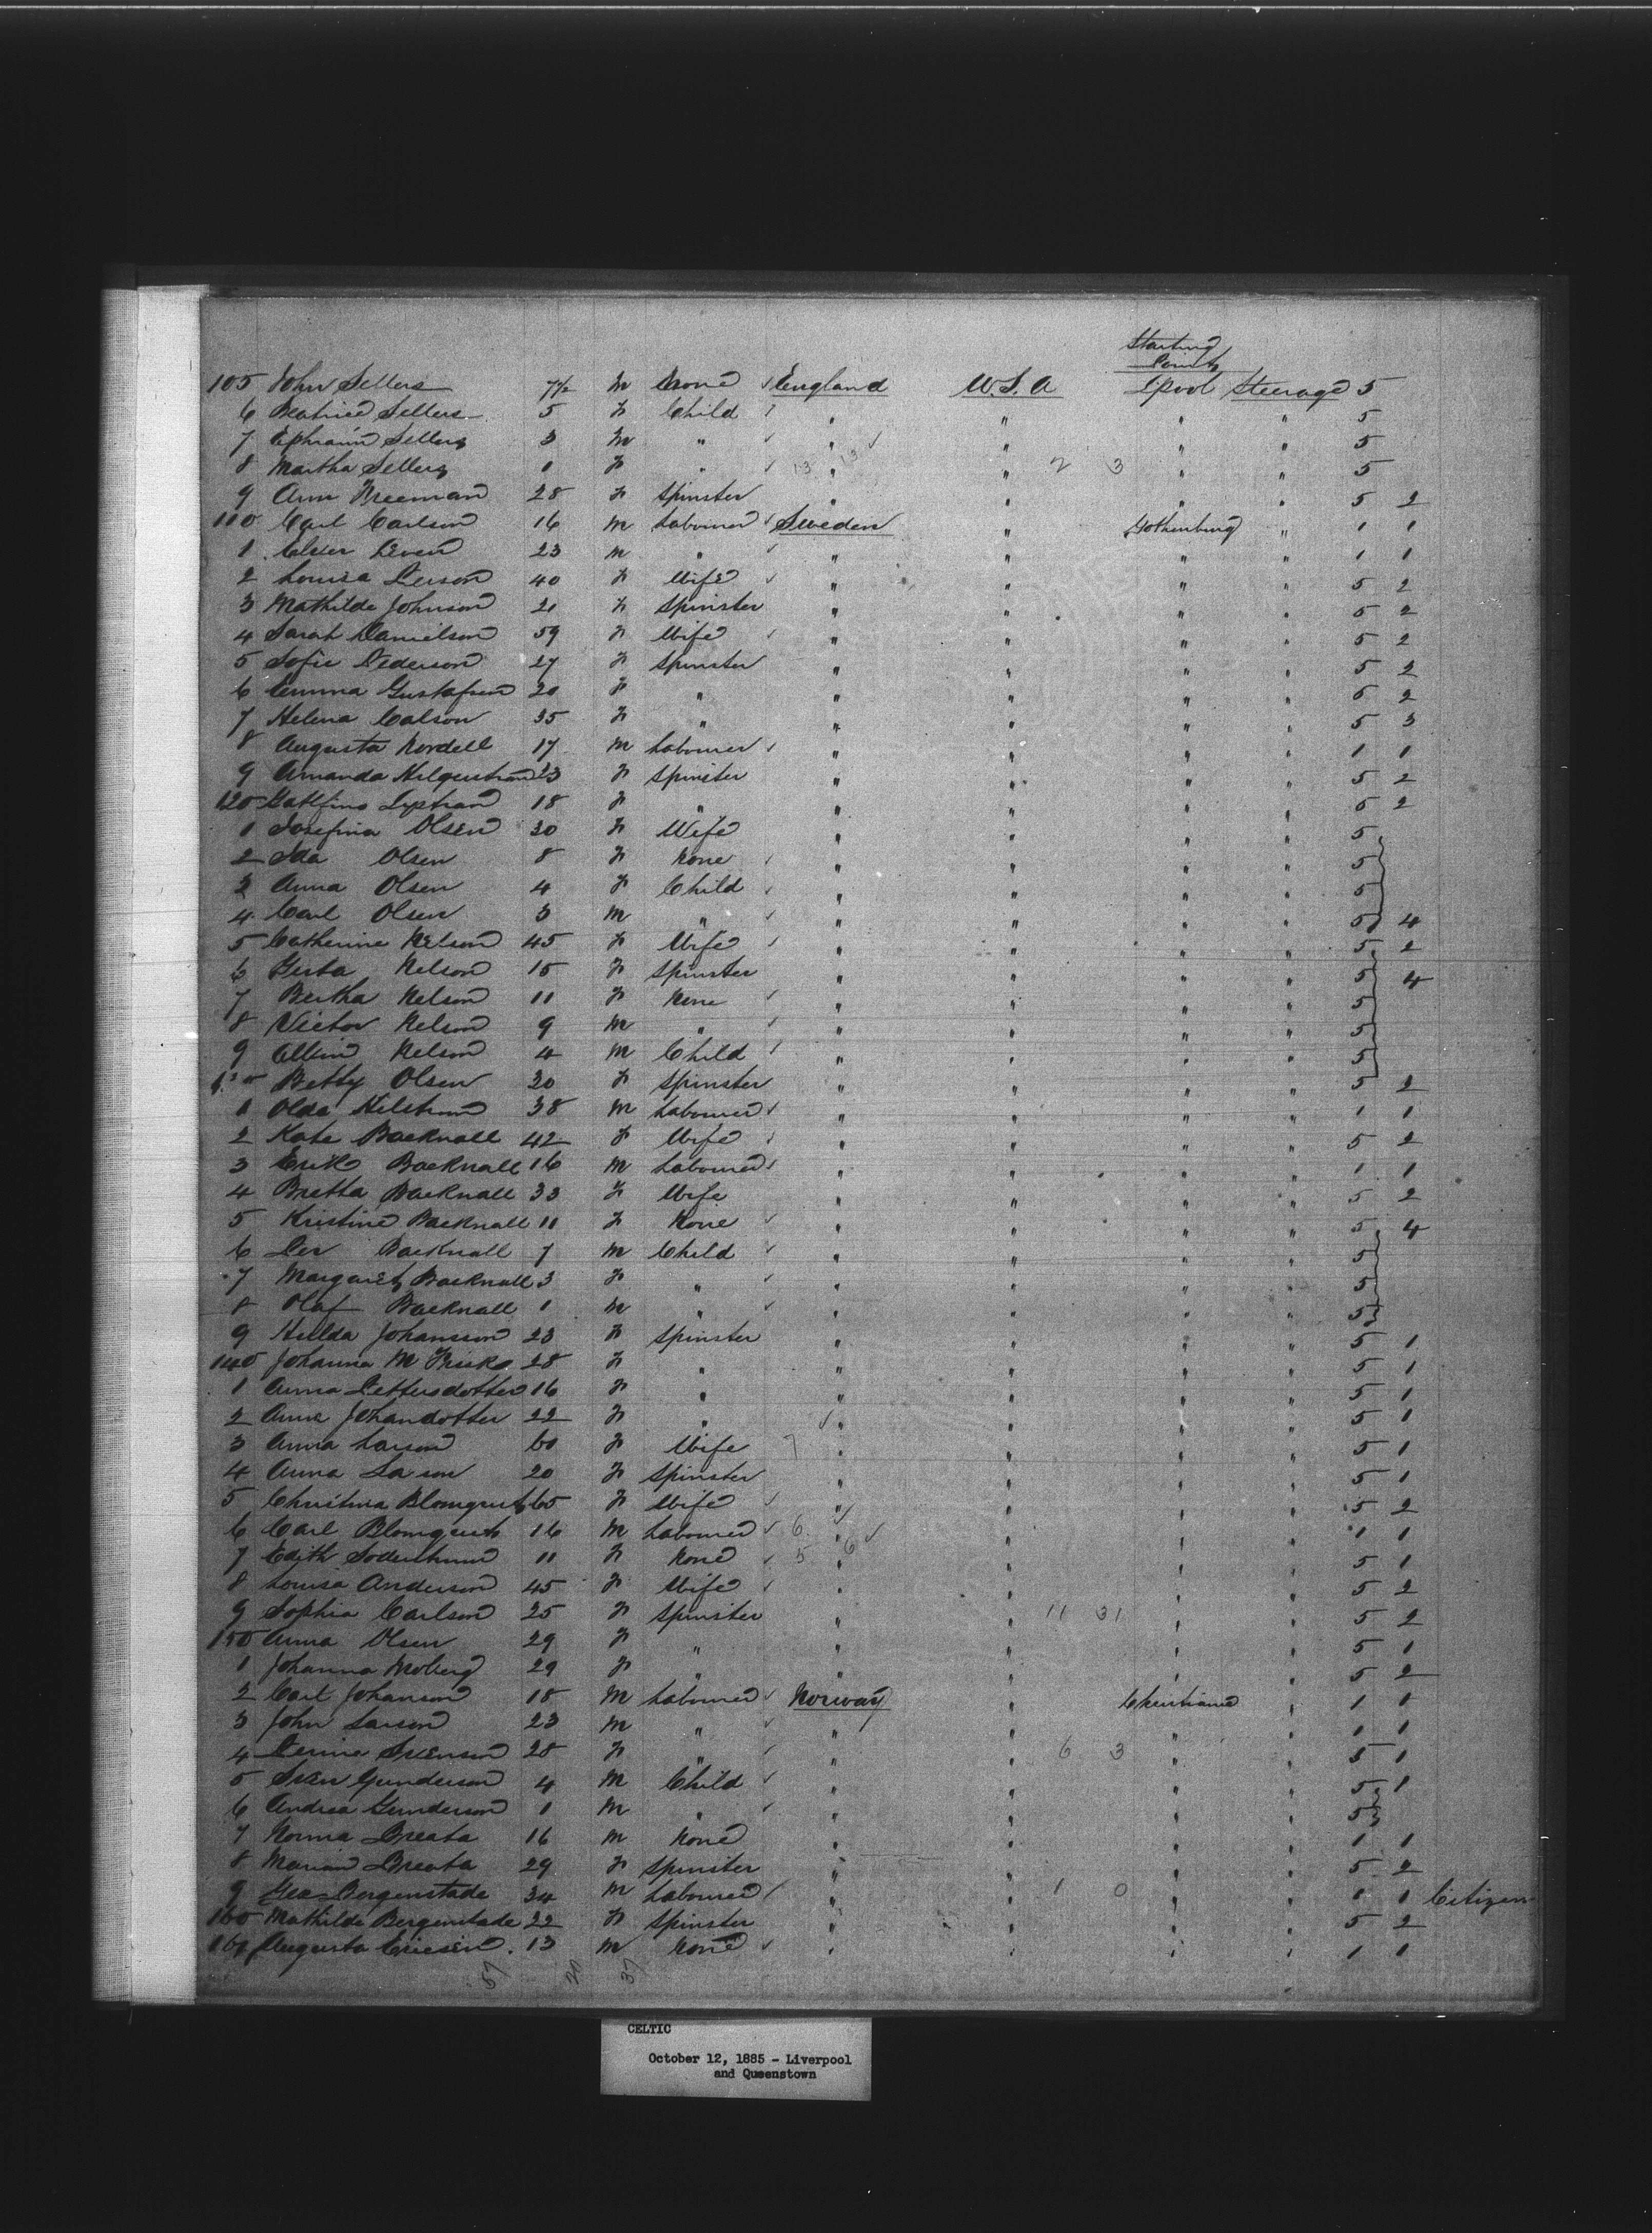 Starting
Point
105 John Sellers 7½ M None ✓ England U.S.A L'pool Steerage 5
6 Beatrice Sellers 5 F Child " " " " 5
7 Ephraim Sellers 3 M " ✓ " ✓ " " " 5
8 Martha Sellers 1 F " ✓ 13 13 " " 2 3 " " 5
9 Ann Freeman 28 F Spinster " " " " 5 2
110 Carl Carlson 16 M Labourer ✓ Sweden " Gothenburg " 1 1
1 23 M " ✓ " " " " 1 1
2 Louisa 40 F Wife ✓ " " " " 5 2
3 Mathilda Johnson 21 F Spinster " " " " 5 2
4 Sarah Danielson 59 F Wife ✓ " " " " 5 2
5 Sofie Pederson 27 F Spinster " " " " 5 2
6 Emma Gustafson 20 F " " " " " 5 2
7 Helena Calson 35 F " " " " " 5 3
8 Augusta Nordell 17 M Labourer ✓ " " " " 1 1
9 Amanda 23 F Spinster " " " " 5 2
120 18 F " " " " " 5 2
1 Josefina Olsen 30 F Wife " " " " 5
2 Ida Olsen 8 F None ✓ " " " " 5
3 Anna Olsen 4 F Child ✓ " " " " 5
4 Carl Olsen 3 M " ✓ " " " " 5 4
5 Catherine Nelson 45 F Wife ✓ " " " " 5 2
6 Gerta Nelson 15 F Spinster " " " " 5 4
7 Bertha Nelson 11 F None ✓ " " " " 5
8 Victor Nelson 9 M " ✓ " " " " 5
9 Albin Nelson 4 M Child ✓ " " " " 5
130 Betty Olsen 20 F Spinster " " " " 5 2
1 Olda Hilstrom 38 M Labourer ✓ " " " " 1 1
2 Kate Backnall 42 F Wife ✓ " " " " 5 2
3 Erik Backnall 16 M Labourer ✓ " " " " 1 1
4 Bretta Backnall 33 F Wife " " " " 5 2
5 Kristine Backnall 11 F None ✓ " " " " 5 4
6 Per Backnall 7 M Child ✓ " " " " 5
7 Margaret Backnall 3 F " ✓ " " " " 5
8 Olaf Backnall 1 M " ✓ " " " " 5
9 Hilda Johansson 23 F Spinster " " " " 5 1
140 Johanna M Frisk 28 F " " " " " 5 1
1 Anna Pettersdotter 16 F " " " " " 5 1
2 Anna Johandotter 22 F " ✓ " " " " 5 1
3 Anna Larson 60 F Wife 7 " " " " 5 1
4 Anna Larson 20 F Spinster " " " " 5 1
5 Christina Blomquist 65 F Wife ✓ " " " " 5 2
6 Carl Blomquist 16 M Labourer ✓ 6 " ✓ " " " 1 1
7 Edith Soderstrum 11 F None ✓ 5 6 " " " " 5 1
8 Louisa Anderson 45 F Wife ✓ " " " " 5 2
9 Sophia Carlson 25 F Spinster " " 11 31 " " 5 2
150 Anna Olsen 29 F " " " " " 5 1
1 Johanna Moberg 29 F " " " " " 5 2
2 Carl Johanson 18 M Labourer ✓ Norway " Christiania " 1 1
3 John Larson 23 M " ✓ " " " " 1 1
4 Svenson 28 F " ✓ " " 6 3 " " 5 1
5 Sven Gunderson 4 M Child ✓ " " " " 5 1
6 Andrea Gunderson 1 M " ✓ " " " " 5
7 Norma Breata 16 M None " " " " 1 1
8 Marian Breata 29 F Spinster " " " " 5 2
9 Geo Bergenstade 34 M Labourer ✓ " " 1 0 " " 1 1 Citizen
160 Mathilda Bergenstade 22 F Spinster " " " " 5 2
161 Augusta Ericsen 13 M None ✓ " " " " 1 1
57 20 37
CELTIC
October 12, 1885 - Liverpool
and Queenstown